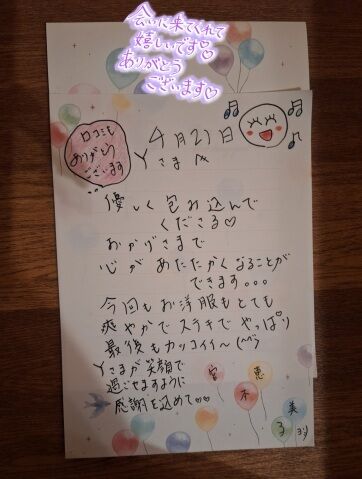 会いに来てくれて
嬉しいです♡
ありがとう
ございます♡
口コミも
ありがとう
ございます
4月21日
Yさま
優しく包み込んで
くださる♡
おかげさまで
心があたたかくなることが
できます。。。
今回もお洋服もとても
爽やかでステキでやっぱり
最後もカッコイイ〜(^^)
Yさまが笑顔で
過ごせますように
感謝を込めて♡♡
恵
美
る